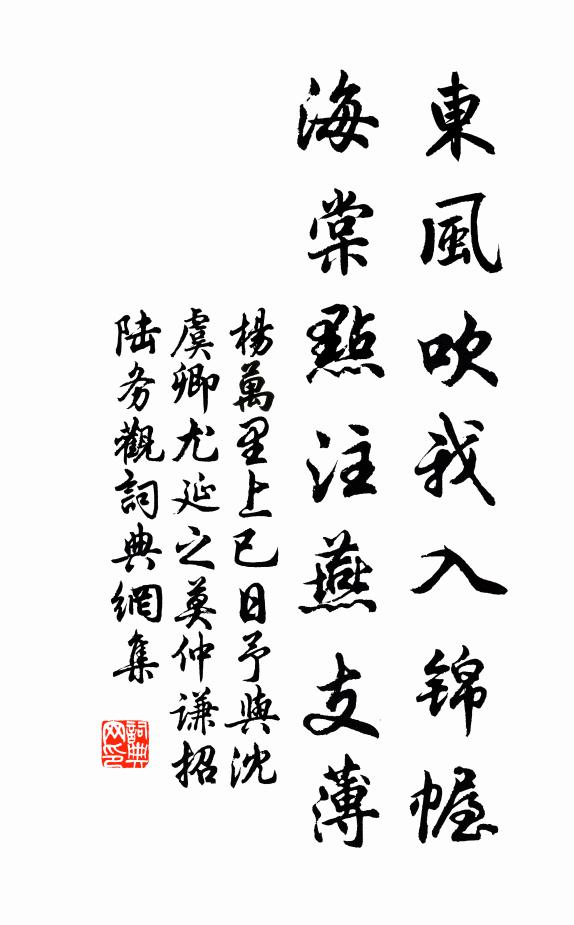 東風吹我入锦幄
海棠點注燕支薄
楊萬里上巳日予與沈
虞卿尤延之莫仲谦招
陆务觀詞典網集
詞典網印